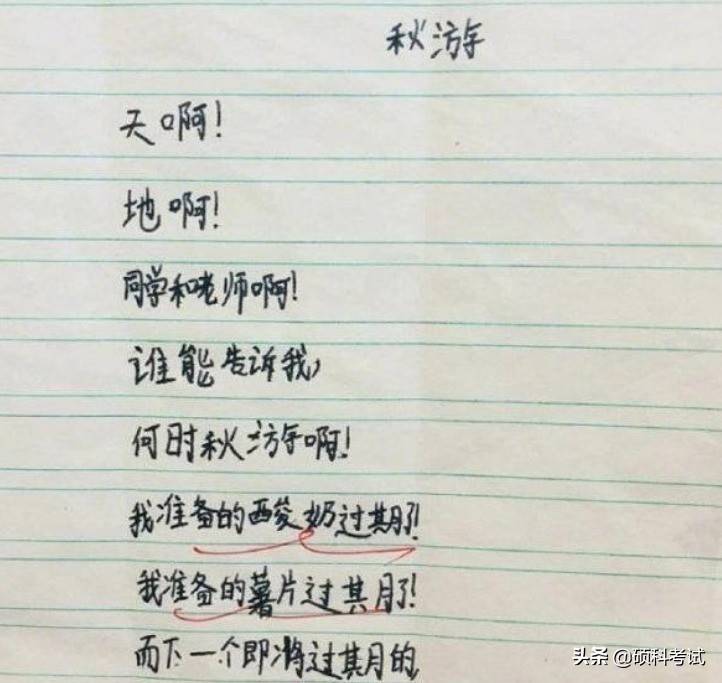 秋游
天啊！
地啊！
同学和老师啊！
谁能告诉我，
何时秋游啊！
我准备的酸奶过期了！
我准备的薯片过期了！
而下一个即将过期的
头条 @硕科考试